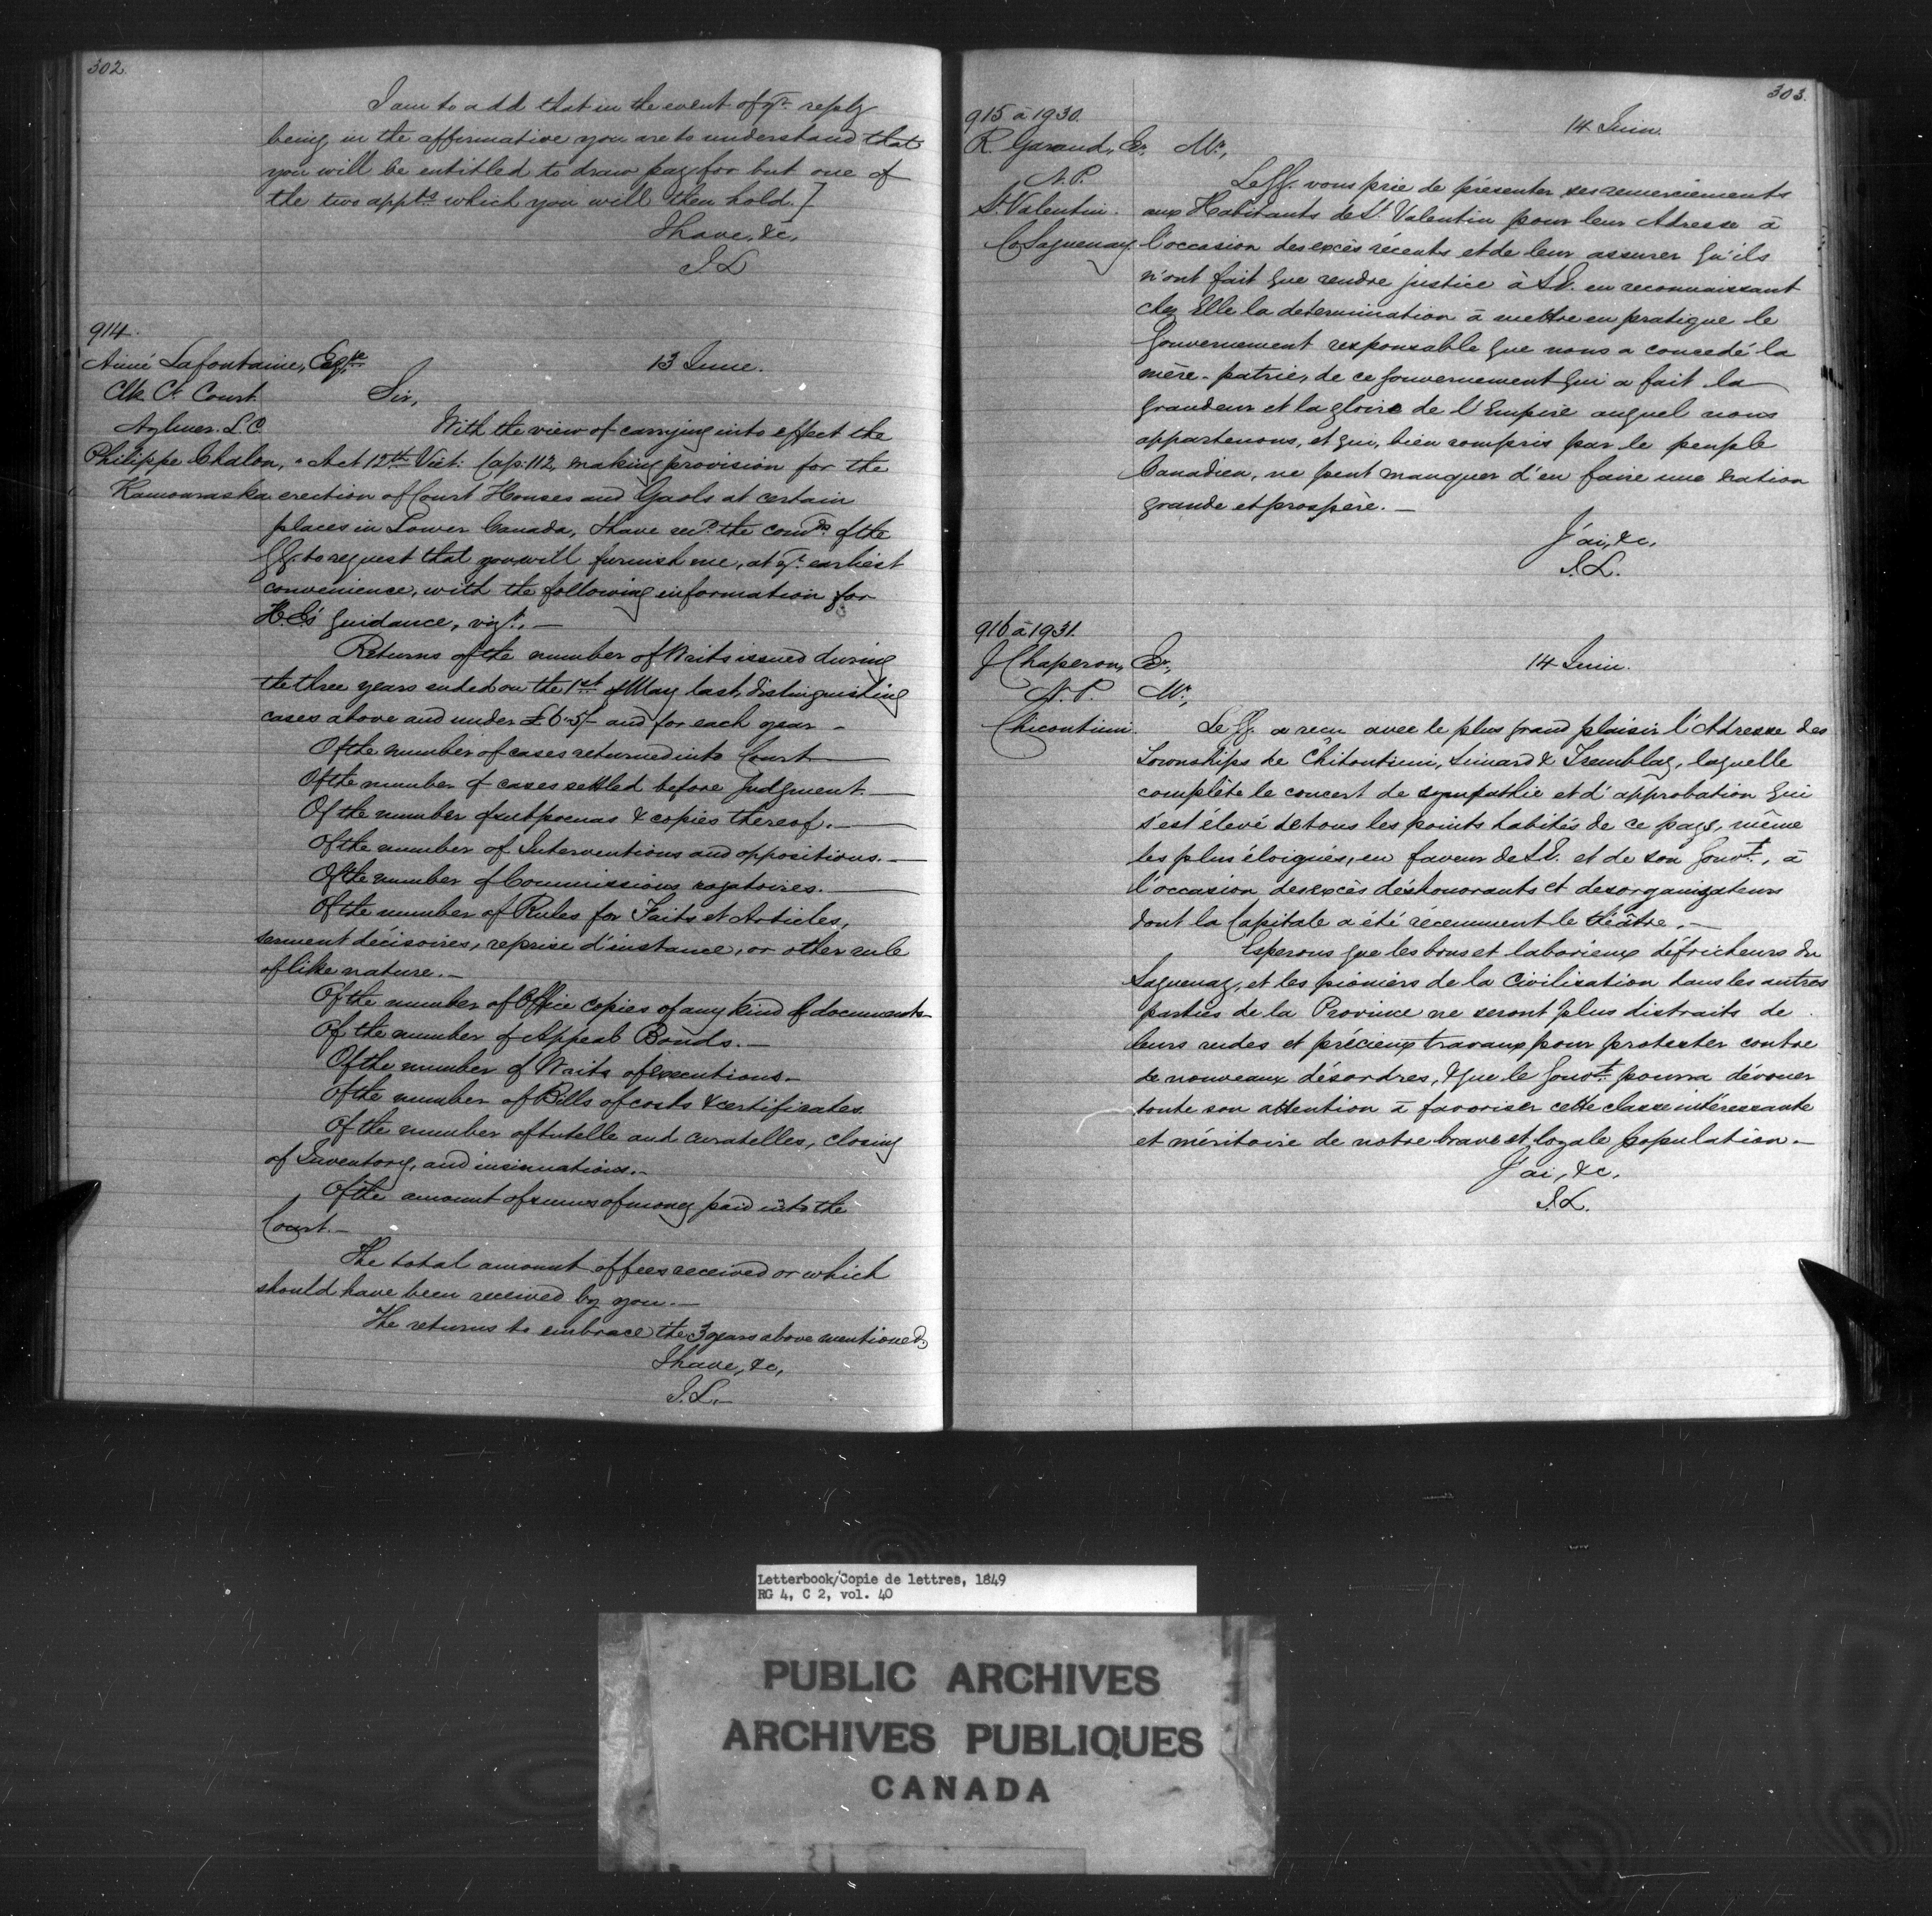 302.
I am to add that in the event of yr. reply
being in the affirmative you are to understand that
you will be entitled to draw pay for but one of
the two appts. which you will then hold.]
I have, &c,
J.L
914.
Aimé Lafontaine, Esqre.
13 June.
Clk Ct. Court
Sir,
Aylmer. L.C.
With the view of carrying into effect the
Philippe Chalon, "
Act 12th Vict: Cap: 112, making provision for the
Kamouraska
erection of Court Houses and Gaols at certain
places in Lower Canada, I have recd. the comds. of the
GG. to request that you will furnish me, at yr. earliest
convenience, with the following information for
H.E's guidance, vizt. —
Returns of the number of Writs issued during
the three years ended on the 1st of May last, distinguishing
cases above and under £6"5/- and for each year —
Of the number of cases returned into Court —
Of the number of cases settled before Judgment. —
Of the number of subpoenas & copies thereof. —
Of the number of Interventions and oppositions. —
Of the number of Commissions rogatoires. —
Of the number of Rules for Faits et Articles,
serment décisoires, reprise d'instance, or other rule
of like nature. —
Of the number of Office copies of any kind of documents —
Of the number of Appeal Bonds. —
Of the number of Writs of executions —
Of the number of Bills of costs & certificates
Of the number of tutelle and curatelles, closing
of Inventory, and insinuations. —
Of the amount of sums of money paid into the
Court. —
The total amount of fees received or which
should have been received by you. —
The returns to embrace the 3 years above mentioned.
I have, &c,
J.L. —
303.
915 à 1930.
14 Juin.
R. Garand, Er.
Mr.,
N.P.
Le GG. vous prie de présenter ses remerciements
St. Valentin.
aux Habitants de St. Valentin pour leur Adresse à
Co. Saguenay.
l'occasion des excès récents et de leur assurer qu'ils
n'ont fait que rendre justice à S.E. en reconnaissant
chez Elle la determination à mettre en pratique le
Gouvernement responsable que nous a concedé la
mère-patrie, de ce gouvernement qui a fait la
grandeur et la gloire de l'Empire auquel nous
appartenons, et qui, bien compris par le peuple
Canadien, ne peut manquer d'en faire une nation
grande et prospère. —
J'ai, &c.
J.L.
916 à 1931.
J Chaperon, Er.,
14 Juin.
N.P.
Mr.,
Chicoutimi.
Le GG. a reçu avec le plus grand plaisir l'Adresse des
Townships de Chitoutimi, Simard & Tremblay, laquelle
complète le concert de sympathie et d'approbation qui
s'est élevé de tous les points habités de ce pays, même
les plus éloignés, en faveur de S.E. et de son Gouvt., à
l'occasion des excès déshonorants et desorganizateurs
dont la Capitale a été récemment le théâtre. —
Esperons que les bons et laborieux défricheurs du
Saguenay, et les pioniers de la Civilisation dans les autres
parties de la Province ne seront plus distraits de
leurs rudes et précieux travaux pour protester contre
de nouveaux désordres, & que le Gouvt. pourra dévouer
toute son attention à favoriser cette classe intéressante
et méritoire de notre brave et loyale population. —
J'ai, &c,
J.L.
Letterbook/Copie de lettres, 1849
RG 4, C 2, vol. 40
PUBLIC ARCHIVES
ARCHIVES PUBLIQUES
CANADA